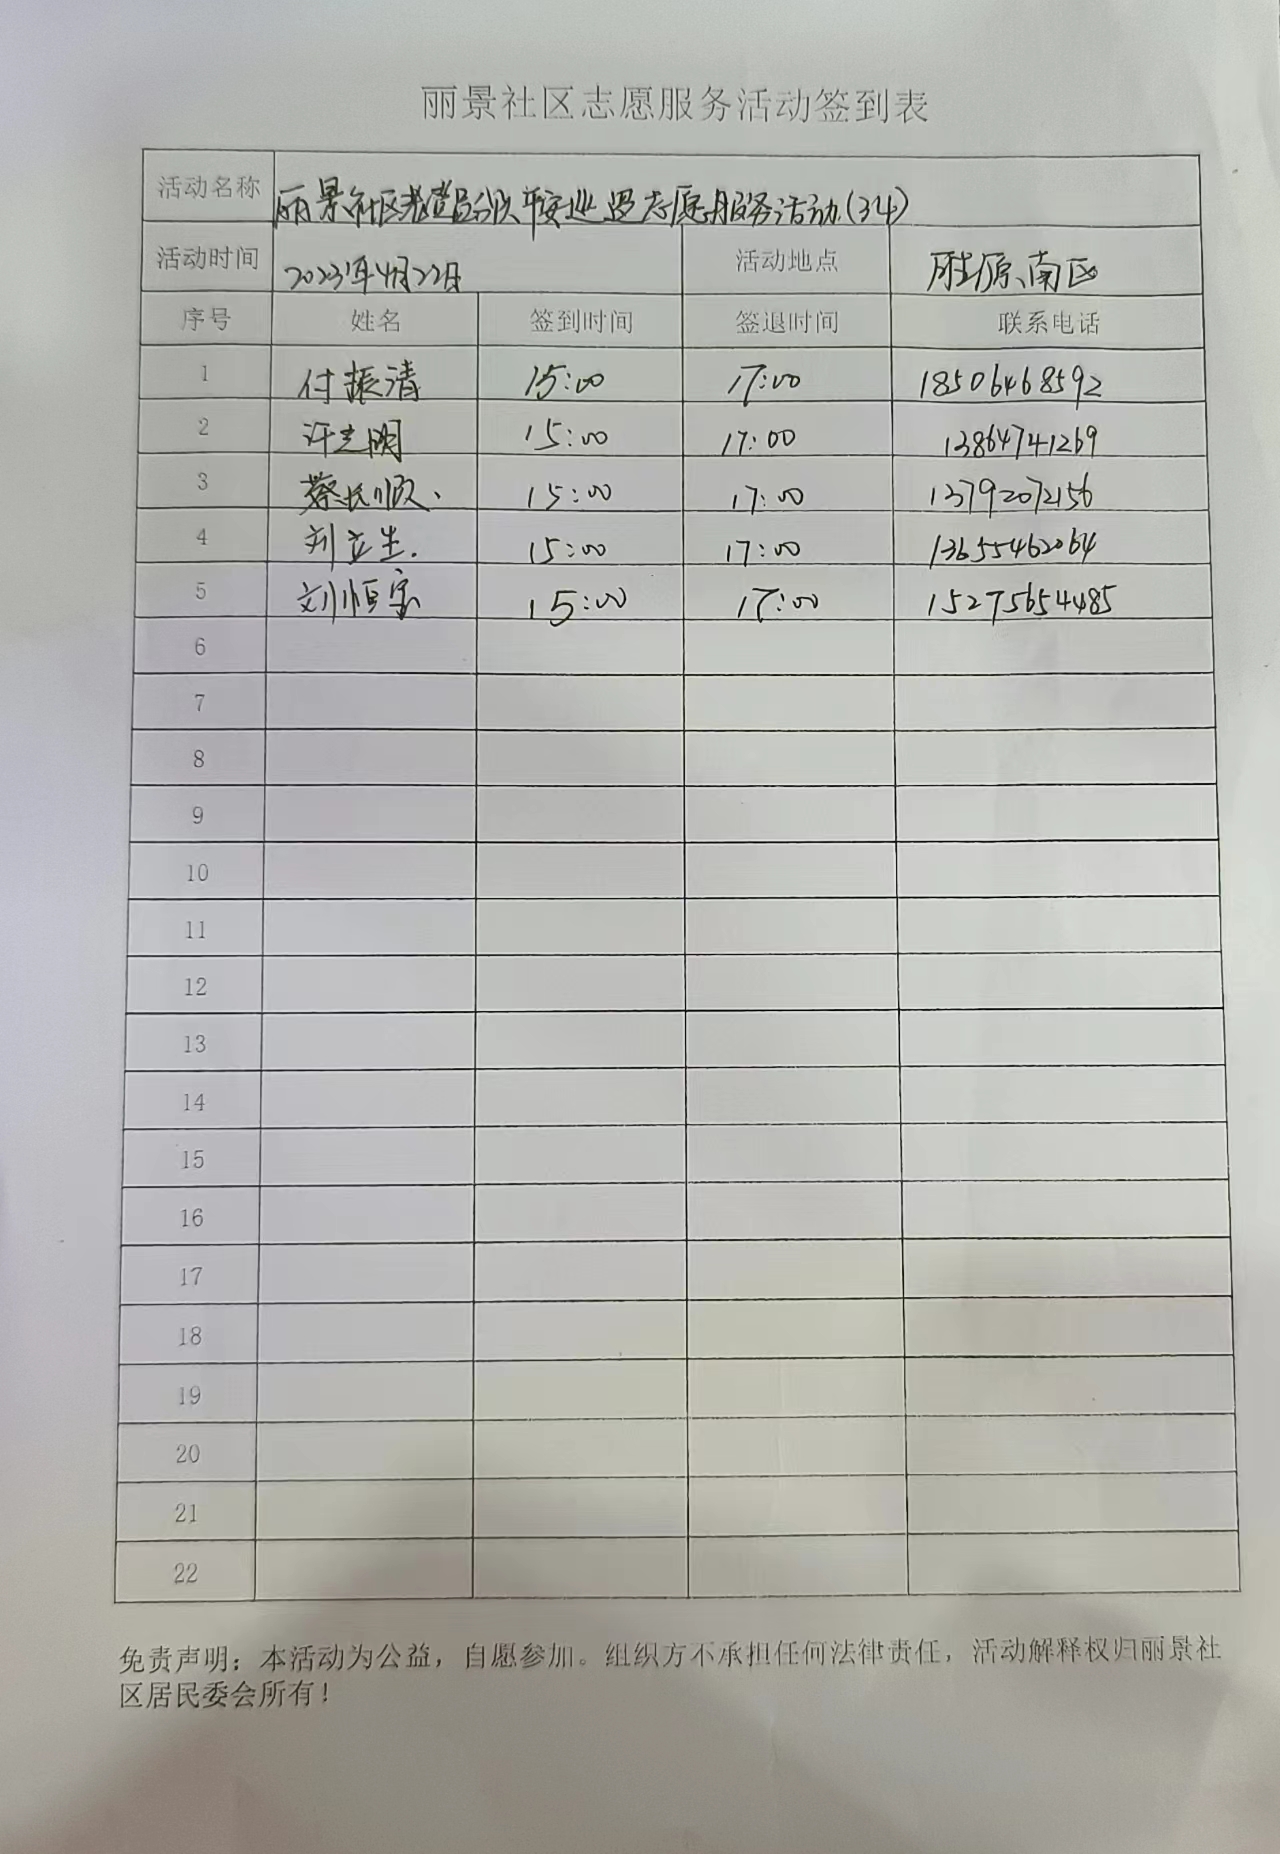 丽景社区志愿服务活动签到表
活动名称 丽景社区老党员分队平安巡逻志愿服务活动(34)
活动时间 2023年4月22日 活动地点 胜原南区
序号 姓名 签到时间 签退时间 联系电话
1 付振清 15:00 17:00 18506468592
2 许志明 15:00 17:00 13864741269
3 蔡长顺 15:00 17:00 13792072156
4 刘立生 15:00 17:00 13655462064
5 刘恒宝 15:00 17:00 15275654485
6
7
8
9
10
11
12
13
14
15
16
17
18
19
20
21
22
免责声明：本活动为公益，自愿参加。组织方不承担任何法律责任，活动解释权归丽景社
区居民委会所有！